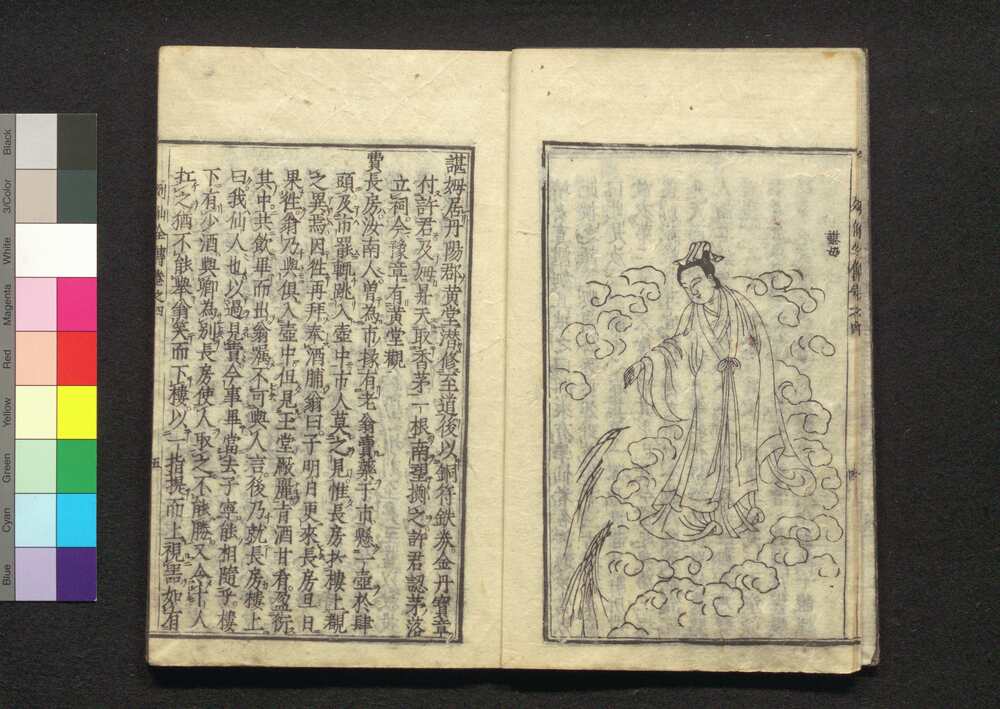 諶母
諶姆居丹陽郡黄堂潜修至道後以銅符鉄券金丹寳章
付許君及姆昇天取香茅一根南望擲之許君認茅落
立祠今豫章有黄堂觀
費長房汝南人曽為市掾有老翁賣藥于市懸一壺於肆
頭及市罷輒跳入壺中市人莫之見惟長房於樓上觀
之異焉因往再拜奉酒脯翁曰子明日更來長房旦日
果往翁乃與俱入壺中但見玉堂嚴麗旨酒甘肴盈衍
其中共飲畢而出翁囑不可與人言後乃就長房樓上
曰我仙人也以過見責今事畢當去子寧能相隨乎樓
下有少酒與卿為別長房使人取之不能勝又令十人
扛之猶不能舉翁笑而下樓以一指提而上視噐如有
列仙全傳巻之四
五
Black
3/Color
White
Magenta
Red
Yellow
Green
Cyan
Blue